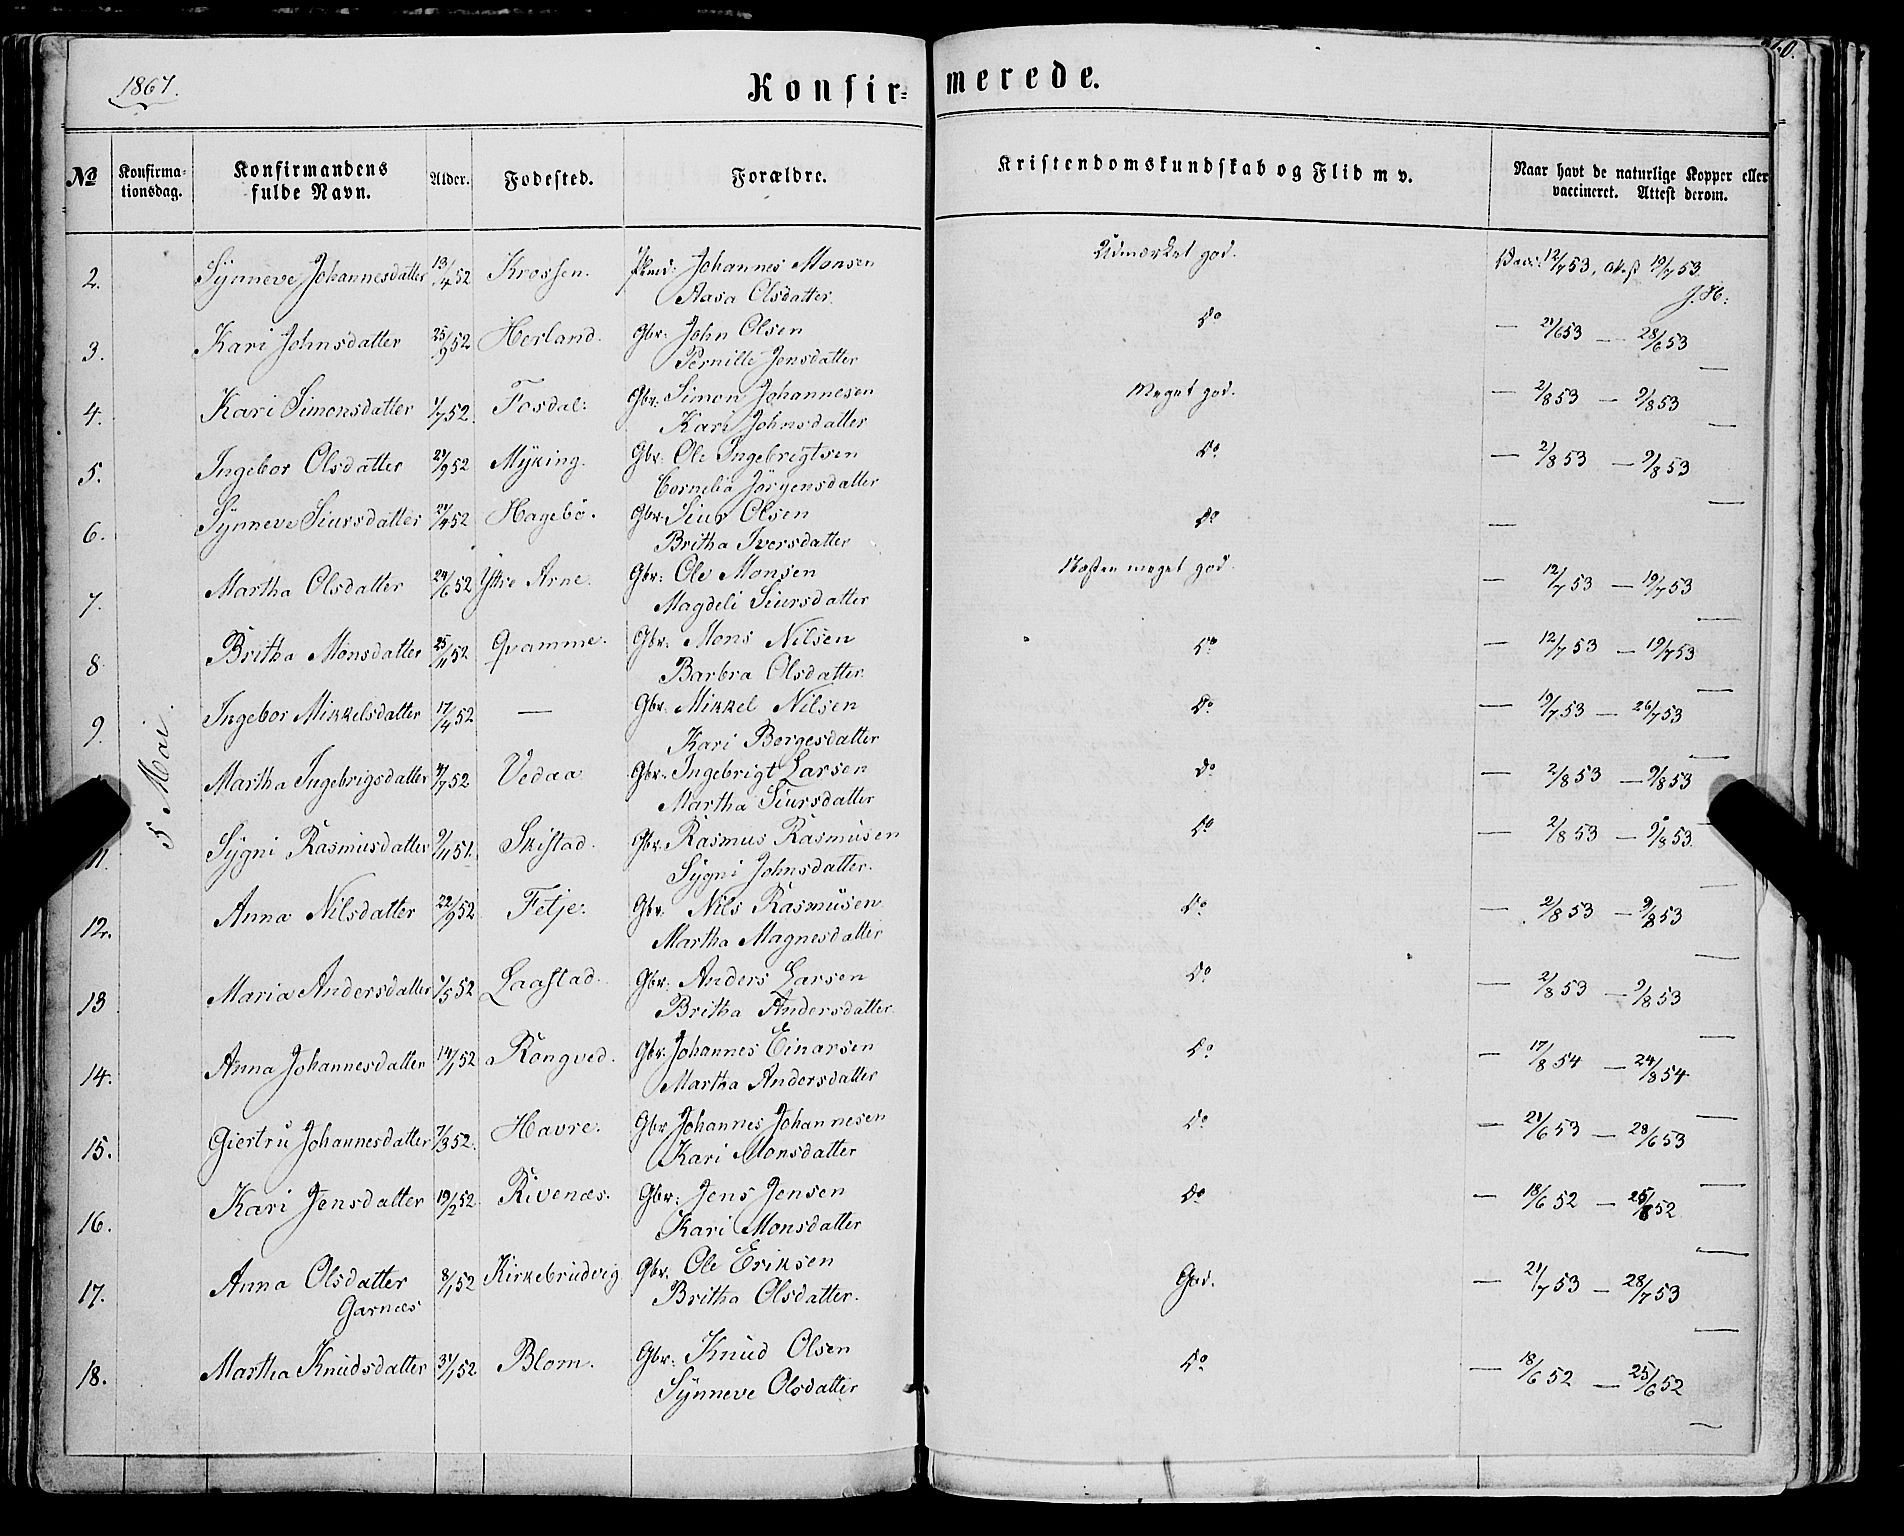 1867.
Konfir-
merede.
No
Konfirma-
tionsdag.
Konfirmandens
fulde Navn.
Alder.
Fødested.
Forældre.
Kristendomskundskab og Flid m v.
Naar havt de naturlige Kopper eller
vaccineret. Attest derom.
5 Mai.
2. Synneve Johannesdatter 13/4 52 Krossen. Johannes Monsen Udmærket god. Vacc: 12/7 53, att 19/7 53
Aasa Olsdatter. J. H:
3. Kari Johnsdatter 25/9 52 Herland. Gbr. John Olsen Do — 21/6 53 — 28/6 53
Pernille Jensdatter —
4. Kari Simonsdatter 1/7 52. Fosdal: Gbr: Simon Johannesen Meget god. — 2/8 53 — 9/8 53
Kari Johnsdatter —
5. Ingebor Olsdatter 21/9 52 Myking. Gbr: Ole Ingebrigtsen Do — 2/8 53 — 9/8 53
Cornelia Jørgensdatter —
6. Synneve Siursdatter 24/4 52 Hagebö. Gbr: Siur Olsen Do —
Britha Iversdatter
7. Martha Olsdatter 24/6 52 Ytre Arne. Gbr: Ole Monsen Næsten meget god. — 12/7 53 — 19/7 53
Magdeli Siursdatter —
8. Britha Monsdatter 25/11 52 Qvamme. Gbr: Mons Nilsen Do — 12/7 53 — 19/7 53
Barbra Olsdatter. —
9. Ingebor Mikkelsdatter 17/4 52 — Gbr. Mikkel Nilsen Do — 19/7 53 — 26/7 53
Kari Børgesdatter —
Martha Ingebrigsdatter 4/7 52 Vedaa Gbr. Ingebrigt Larsen Do — 2/8 53 — 9/8 53
Martha Siursdatter
11. Sygni Rasmusdatter 9/11 51. Skistad. Gbr. Rasmus Rasmusen Do — 2/8 53 — 9/8 53.
Sygni Johnsdatter. —
12. Anna Nilsdatter 22/9 52 Fetje. Gbr. Nils Rasmusen Do — 2/8 53 — 9/8 53
Martha Magnesdatter —
13 Maria Andersdatter /5 52 Laastad. Gbr. Anders Larsen Do — 2/8 53 — 9/8 53
Britha Andersdatter. —
14. Anna Johannesdatter 14/1 52 Rongved. Gbr. Johannes Einarsen Do — 17/8 54 — 24/8 54
Martha Andersdatter —
15. Giertru Johannesdatter 7/3 52. Havre. Gbr Johannes Johannesen Do — 21/6 53 — 28/6 53
Kari Monsdatter —
16. Kari Jensdatter 19/2 52. Rivenæs. Gbr. Jens Jensen Do — 18/6 52 — 25/8 52
Kari Monsdatter —
17. Anna Olsdatter 8/1 52 Kirkebrudvig Gbr. Ole Eriksen God. — 21/7 53 — 28/7 53
Garnæs Britha Olsdatter. —
18. Martha Knudsdatter 31/1 52 Blom. Gbr. Knud Olsen Do — 18/6 52 — 25/6 52
Synneve Olsdatter —